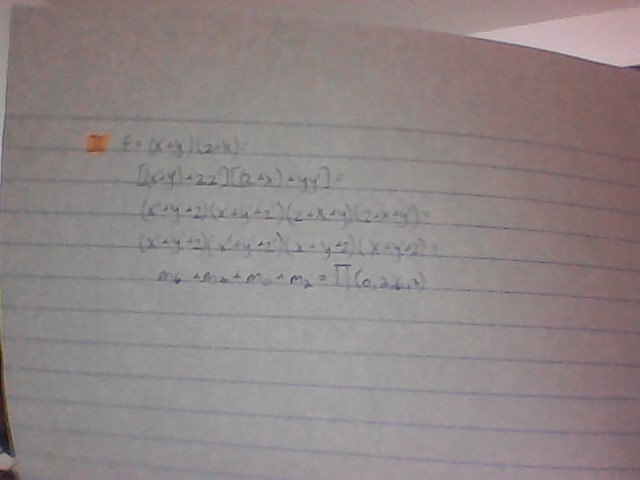 F = (x'+y')(z+x) =
[(x'+y')+zz'][(z+x)+yy'] =
(x'+y'+z)(x'+y'+z')(z+x+y)(z+x+y') =
(x'+y'+z)(x'+y'+z')(x+y+z)(x+y'+z) =
m6 + m7 + m0 + m2 = ∏(0,2,6,7)